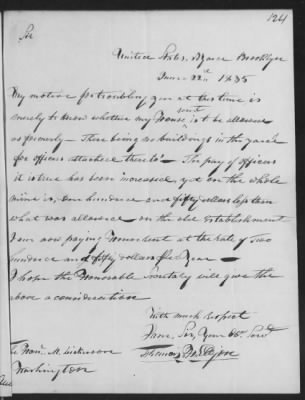 124
Sir
United States, Brooklyn
June 22nd 1835
My motive for troubling you at this time is
merely to know whether my House rent is to be allowed
as formerly - There being no buildings in the yard
for officers attached thereto - The pay of officers
it is true has been increased, yet on the whole
mine is, one hundred and fifty dollars less than
what was allowed on the old establishment
I am now paying House rent at the rate of Two
hundred and fifty dollars a Year -
I hope the Honorable Secretary will give the
above a consideration
With much respect
I am, Sir, Your Ob. Servt
Thomas
The Hon. M. Dickerson
Washington